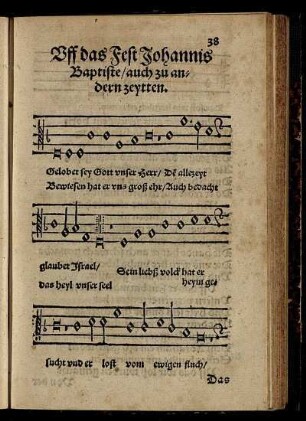 38
Vff das Fest Johannis
Baptiste/auch zu an⸗
dern zeytten.
Gelobet sey Gott vnser Herr/ Dē allezeyt
Bewiesen hat er vn⸗ groß ehr/Auch bedacht
glaubet Israel/ Sein liebß volck hat er
das heyl vnser seel heym ge⸗
sucht vnd er lost vom ewigen fluch/
Das